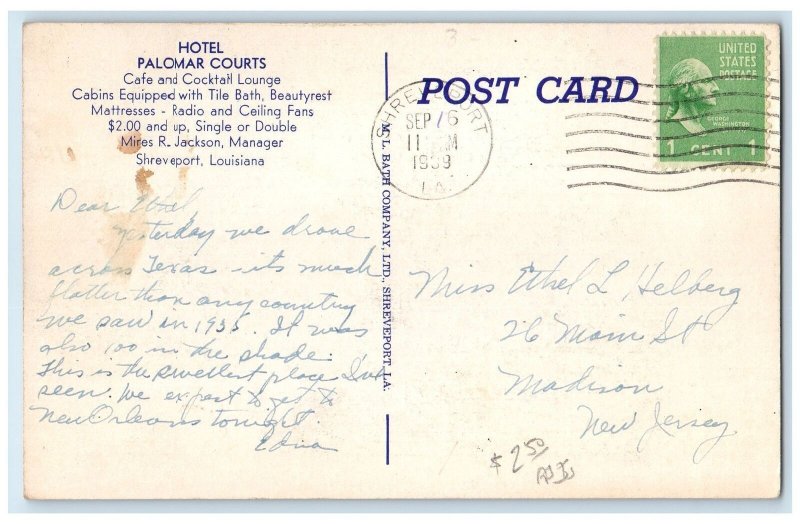 HOTEL
PALOMAR COURTS
Cafe and Cocktail Lounge
Cabins Equipped with Tile Bath, Beautyrest
Mattresses - Radio and Ceiling Fans
$2.00 and up, Single or Double
Mires R. Jackson, Manager
Shreveport, Louisiana
Dear Ethel
Yesterday we drove
across Texas - its much
flatter than any country
we saw in 1935. It was
also 100 in the shade.
This is the swellest place I've
seen. We expect to get to
New Orleans tonight.
Edna
M. L. BATH COMPANY, LTD., SHREVEPORT, LA.
POST CARD
SHREVEPORT
SEP 6
11 M
1939
LA.
UNITED
STATES
POSTAGE
GEORGE
WASHINGTON
1 CENT 1
Miss Ethel L. Helberg
26 Main St
Madison
New Jersey
3
$2.50